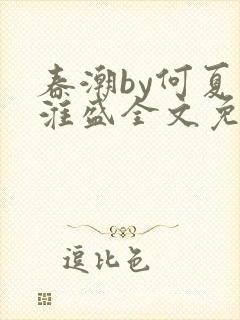 春潮by何夏
淮盛全文免
逗比色